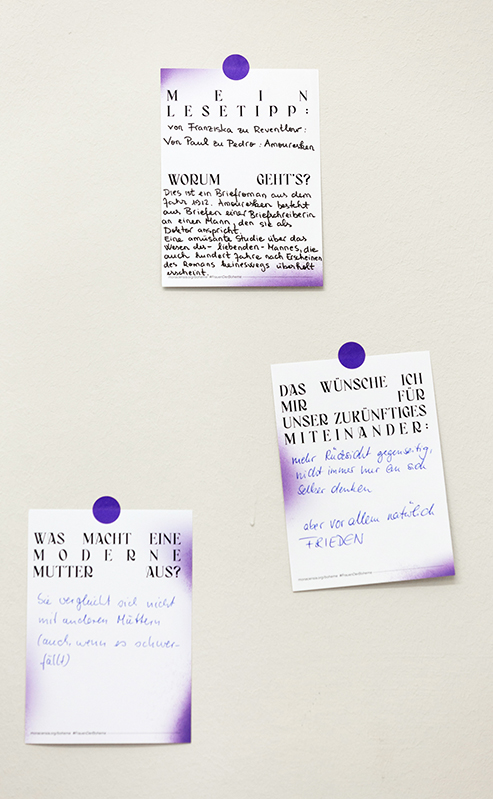 MEIN
LESETIPP:
von Franziska zu Reventlow:
Von Paul zu Pedro: Amouresken
WORUM GEHT'S?
Dies ist ein Briefroman aus dem
Jahr 1912. Amouresken besteht
aus Briefen einer Briefschreiberin
an einen Mann, den sie als
Doktor anspricht.
Eine amüsante Studie über das
Wesen des - liebenden - Mannes, die
auch hundert Jahre nach Erscheinen
des Romans keineswegs überholt
erscheint.
DAS WÜNSCHE ICH
MIR FÜR
UNSER ZUKÜNFTIGES
MITEINANDER:
mehr Rücksicht gegenseitig,
nicht immer nur an sich
selber denken
aber vor allem natürlich
FRIEDEN
WAS MACHT EINE
MODERNE
MUTTER AUS?
Sie vergleicht sich nicht
mit anderen Müttern
(auch wenn es schwer-
fällt)